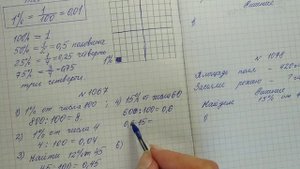 1% = 1/100 = 0,01
100% = 1
50% = 1/2 = 0,5 половина
25% = 1/4 = 0,25 четверть
75% = 3/4 = 0,75
три четверти
1%
N 1067
1) 1% от числа
: 100 = 8.
2) 1% от числа 4
4 : 100 = 0,04
3) Найти 12% от 45
45 : 100 = 0,45
4) 15% от числа 60
60 : 100 = 0,6
0,6 · 15 =
5)
N 1078
Площадь поля
Засеяли
Найдём
15% от